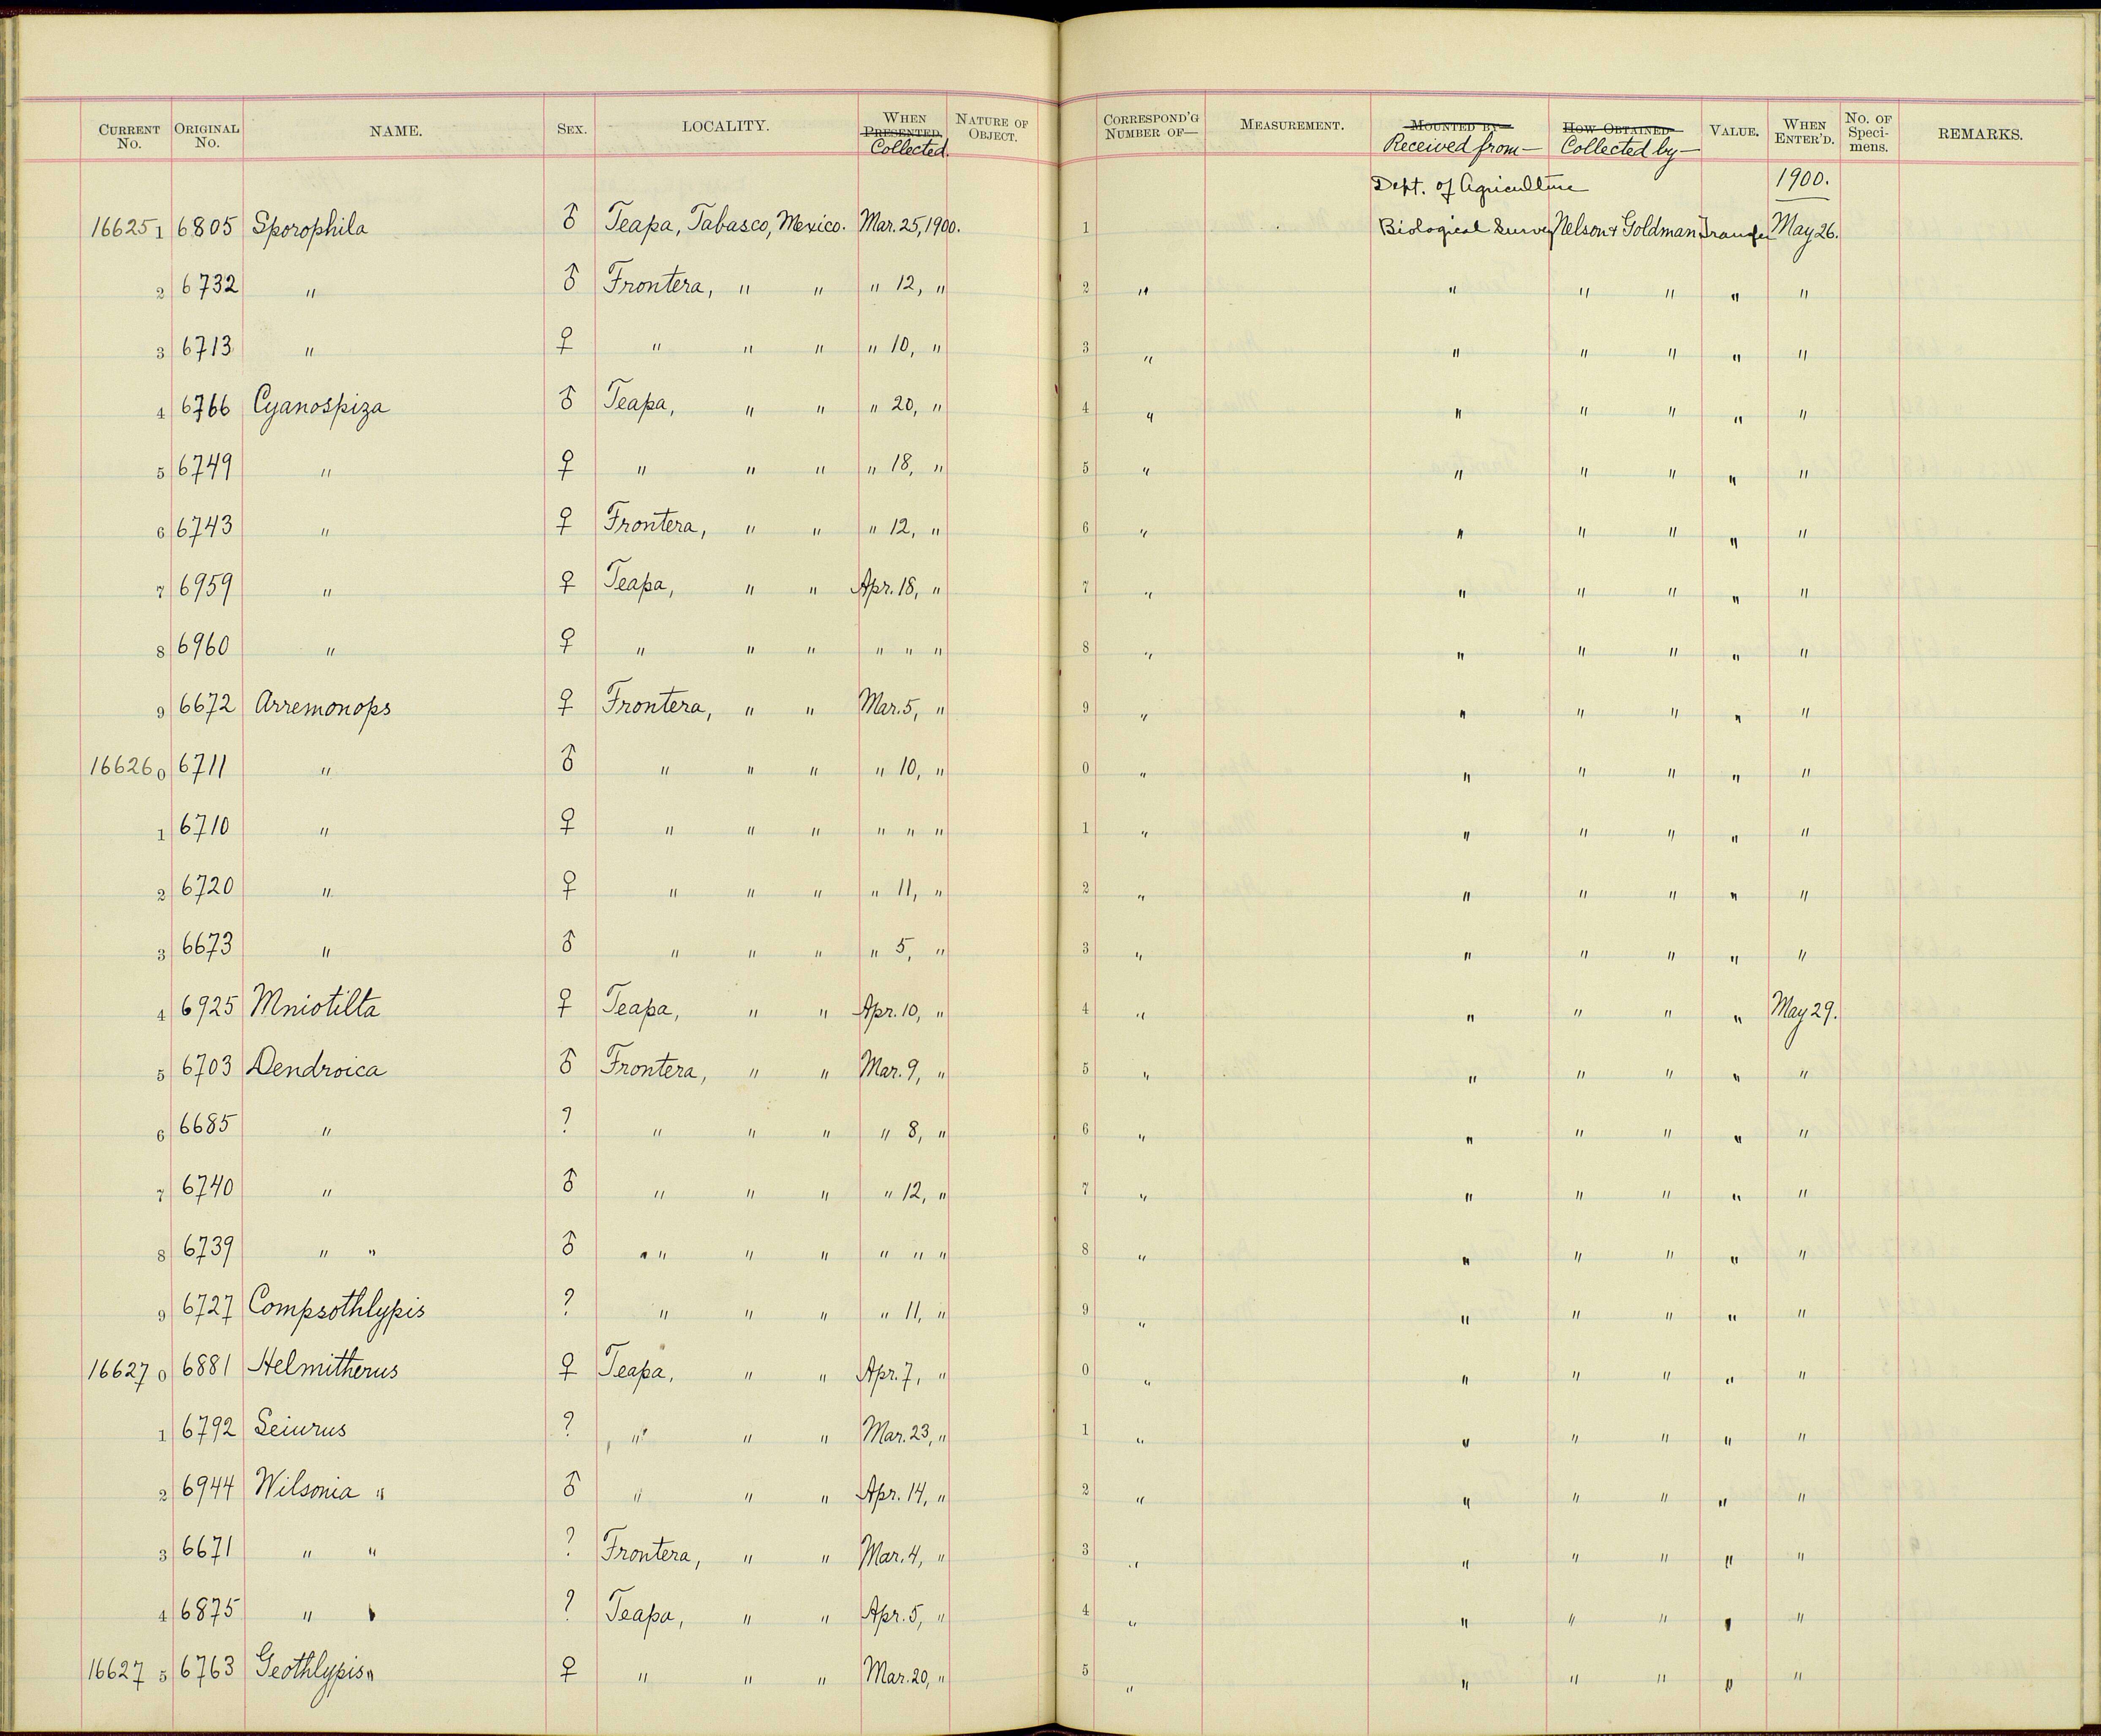 CURRENT No. ORIGINAL No. NAME. SEX. LOCALITY. WHEN PRESENTED. Collected. NATURE OF OBJECT. CORRESPOND'G NUMBER OF— MEASUREMENT. MOUNTED BY— Received from— HOW OBTAINED— Collected by— VALUE. WHEN ENTER'D. No. OF Speci-mens. REMARKS.
Dept. of Agriculture 1900.
16625 1 6805 Sporophila ♂ Teapa, Tabasco, Mexico. Mar. 25, 1900. 1 Biological Survey Nelson & Goldman Transfer May 26.
2 6732 " ♂ Frontera, " " " 12, " 2 " " " " " "
3 6713 " ♀ " " " " 10, " 3 " " " " " "
4 6766 Cyanospiza ♂ Teapa, " " " 20, " 4 " " " " " "
5 6749 " ♀ " " " " 18, " 5 " " " " " "
6 6743 " ♀ Frontera, " " " 12, " 6 " " " " " "
7 6959 " ♀ Teapa, " " Apr. 18, " 7 " " " " " "
8 6960 " ♀ " " " " " " 8 " " " " " "
9 6672 Arremonops ♀ Frontera, " " Mar. 5, " 9 " " " " " "
16626 0 6711 " ♂ " " " " 10, " 0 " " " " " "
1 6710 " ♀ " " " " " " 1 " " " " " "
2 6720 " ♀ " " " " 11, " 2 " " " " " "
3 6673 " ♂ " " " " 5, " 3 " " " " " "
4 6925 Mniotilta ♀ Teapa, " " Apr. 10, " 4 " " " " " May 29.
5 6703 Dendroica ♂ Frontera, " " Mar. 9, " 5 " " " " " "
6 6685 " ? " " " " 8, " 6 " " " " " "
7 6740 " ♂ " " " " 12, " 7 " " " " " "
8 6739 " " ♂ " " " " " " 8 " " " " " "
9 6727 Compsothlypis ? " " " " 11, " 9 " " " " " "
16627 0 6881 Helmitherus ♀ Teapa, " " Apr. 7, " 0 " " " " " "
1 6792 Seiurus ? " " " Mar. 23, " 1 " " " " " "
2 6944 Wilsonia " ♂ " " " Apr. 14, " 2 " " " " " "
3 6671 " " ? Frontera, " " Mar. 4, " 3 " " " " " "
4 6875 " " ? Teapa, " " Apr. 5, " 4 " " " " " "
16627 5 6763 Geothlypis " ♀ " " " Mar. 20, " 5 " " " " " "